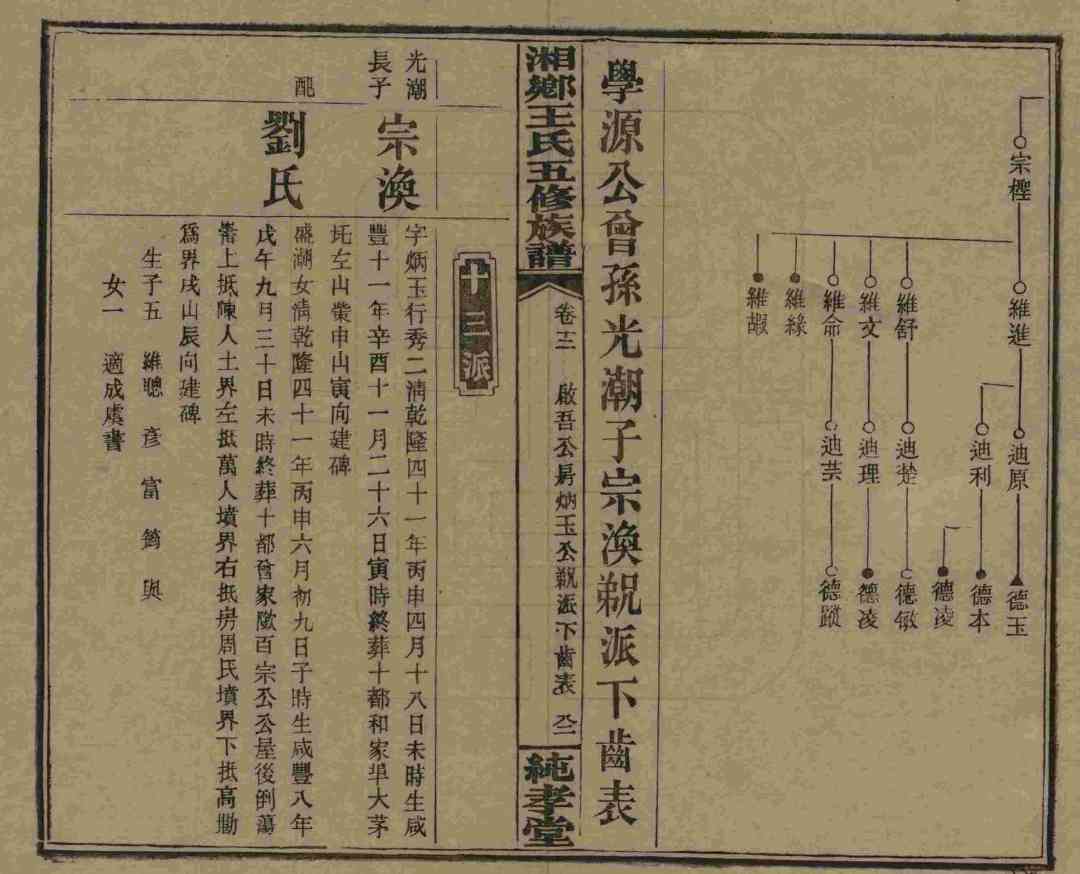 宗樫
維進
迪原
德玉
迪利
德本
德凌
維舒
迪楚
德敏
維文
迪理
德凌
維命
迪芸
德蹤
維緣
維嘏
學源公曾孫光潮子宗渙㲽派下齒表
湘鄉王氏五修族譜
卷十三 啟吾公房炳玉公㲽派下齒表
純孝堂
十三派
光潮
長子
宗渙
字炳玉行秀二淸乾隆四十一年丙申四月十八日未時生咸
豐十一年辛酉十一月二十六日寅時終葬十都和家埠大茅
坵左山塋申山寅向建碑
配
劉氏
盛湖女淸乾隆四十一年丙申六月初九日子時生咸豐八年
戊午九月三十日未時終葬十都曾家歐百宗公公屋後倒蕩
上抵陳人土界左抵萬人墳界右抵房周氏墳界下抵高勘
爲界戌山辰向建碑
生子五 維聰 彥 富 筠 與
女一 適成虞書